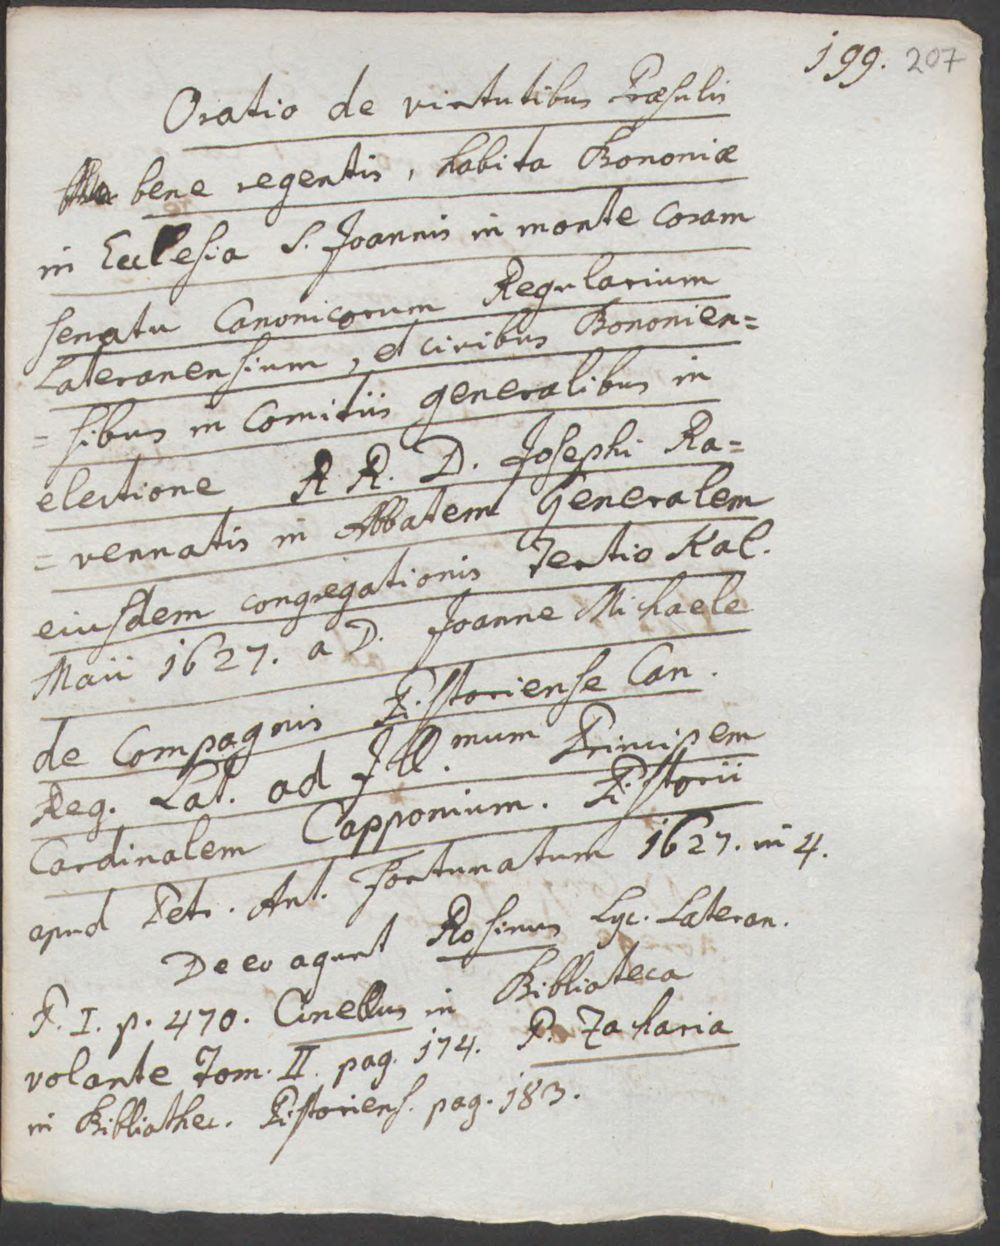 199. 207
Oratio de virtutibus Præsulis
bene regentis, habita Bononiæ
in Ecclesia S. Joannis in monte coram
senatu Canonicorum Regularium
Lateranensium, et civibus Bononien=
=sibus in Comitiis generalibus in
electione A R. D. Josephi Ra=
=vennatis in Abbatem Generalem
eiusdem congregationis Tertio Kal.
Maii 1627. a D. Joanne Michaele
de Compagnis Pistoriense Can.
Reg. Lat. ad Ill.mum Principem
Cardinalem Capponium. Pistorii
apud Petr. Ant. Fortunatum 1627. in 4.
De eo agunt Rosinus Lyc. Lateran.
T. I. p. 470. Cinellus in Biblioteca
volante Tom. II. pag. 174. P. Zacharia
in Bibliothec. Pistoriens. pag. 183.